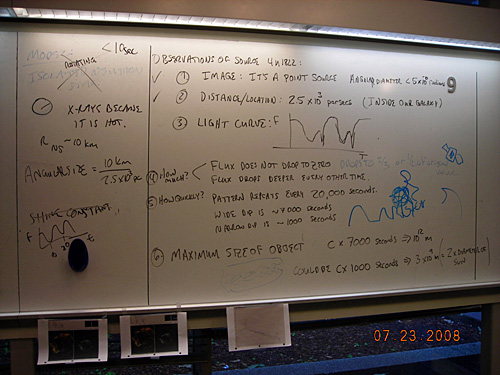 MODEL:
ROTATING
< 10 sec
X-RAYS BECAUSE
IT IS HOT.
R NS ~ 10 km
ANGULAR SIZE = 10 km / 2.5 x 10³ pc
F
OBSERVATIONS OF SOURCE 4U1822:
✓ ① IMAGE: IT'S A POINT SOURCE ANGULAR DIAMETER < 5 x 10 9
✓ ② DISTANCE/LOCATION: 2.5 x 10³ parsecs (INSIDE OUR GALAXY)
③ LIGHT CURVE: F
④ HOW MUCH? < FLUX DOES NOT DROP TO ZERO
FLUX DROPS DEEPER EVERY OTHER TIME.
⑤ HOW QUICKLY? PATTERN REPEATS EVERY 20,000 SECONDS.
WIDE DIP IS ~ 7000 seconds
NARROW DIP IS ~ 1000 seconds
⑥ MAXIMUM SIZE OF OBJECT C x 7000 seconds ⇒ 10¹² m
COULD BE C x 1000 seconds ⇒ 3 x 10 m (= 2 x DIAMETER OF SUN
07 23 2008